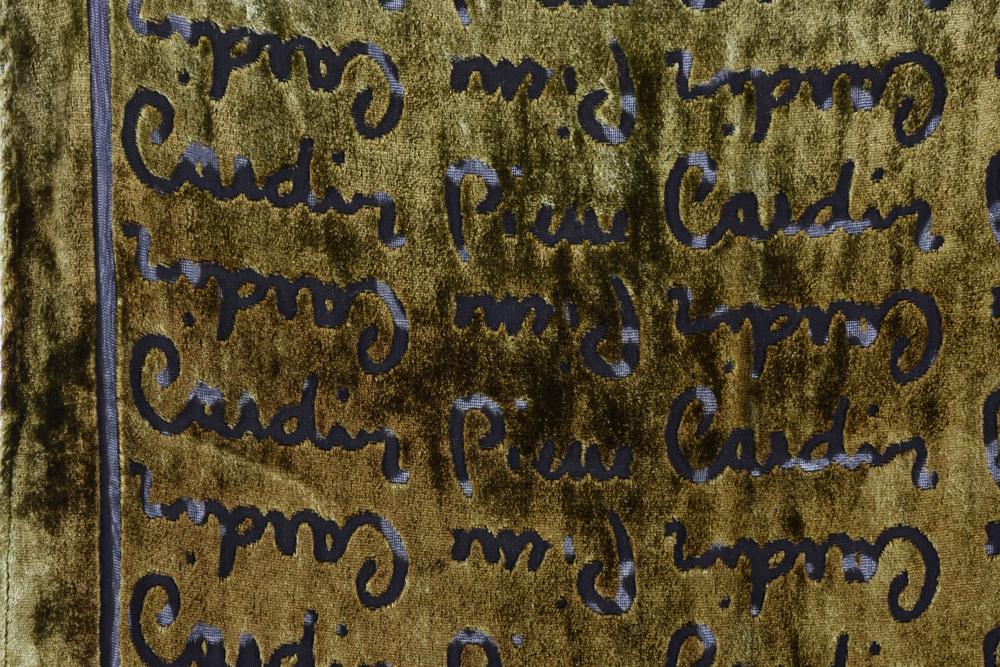 Cardin Pierre Cardin
Cardin Pierre Cardin
Cardin Pierre Cardin
Cardin Pierre Cardin
Cardin Pierre Cardin